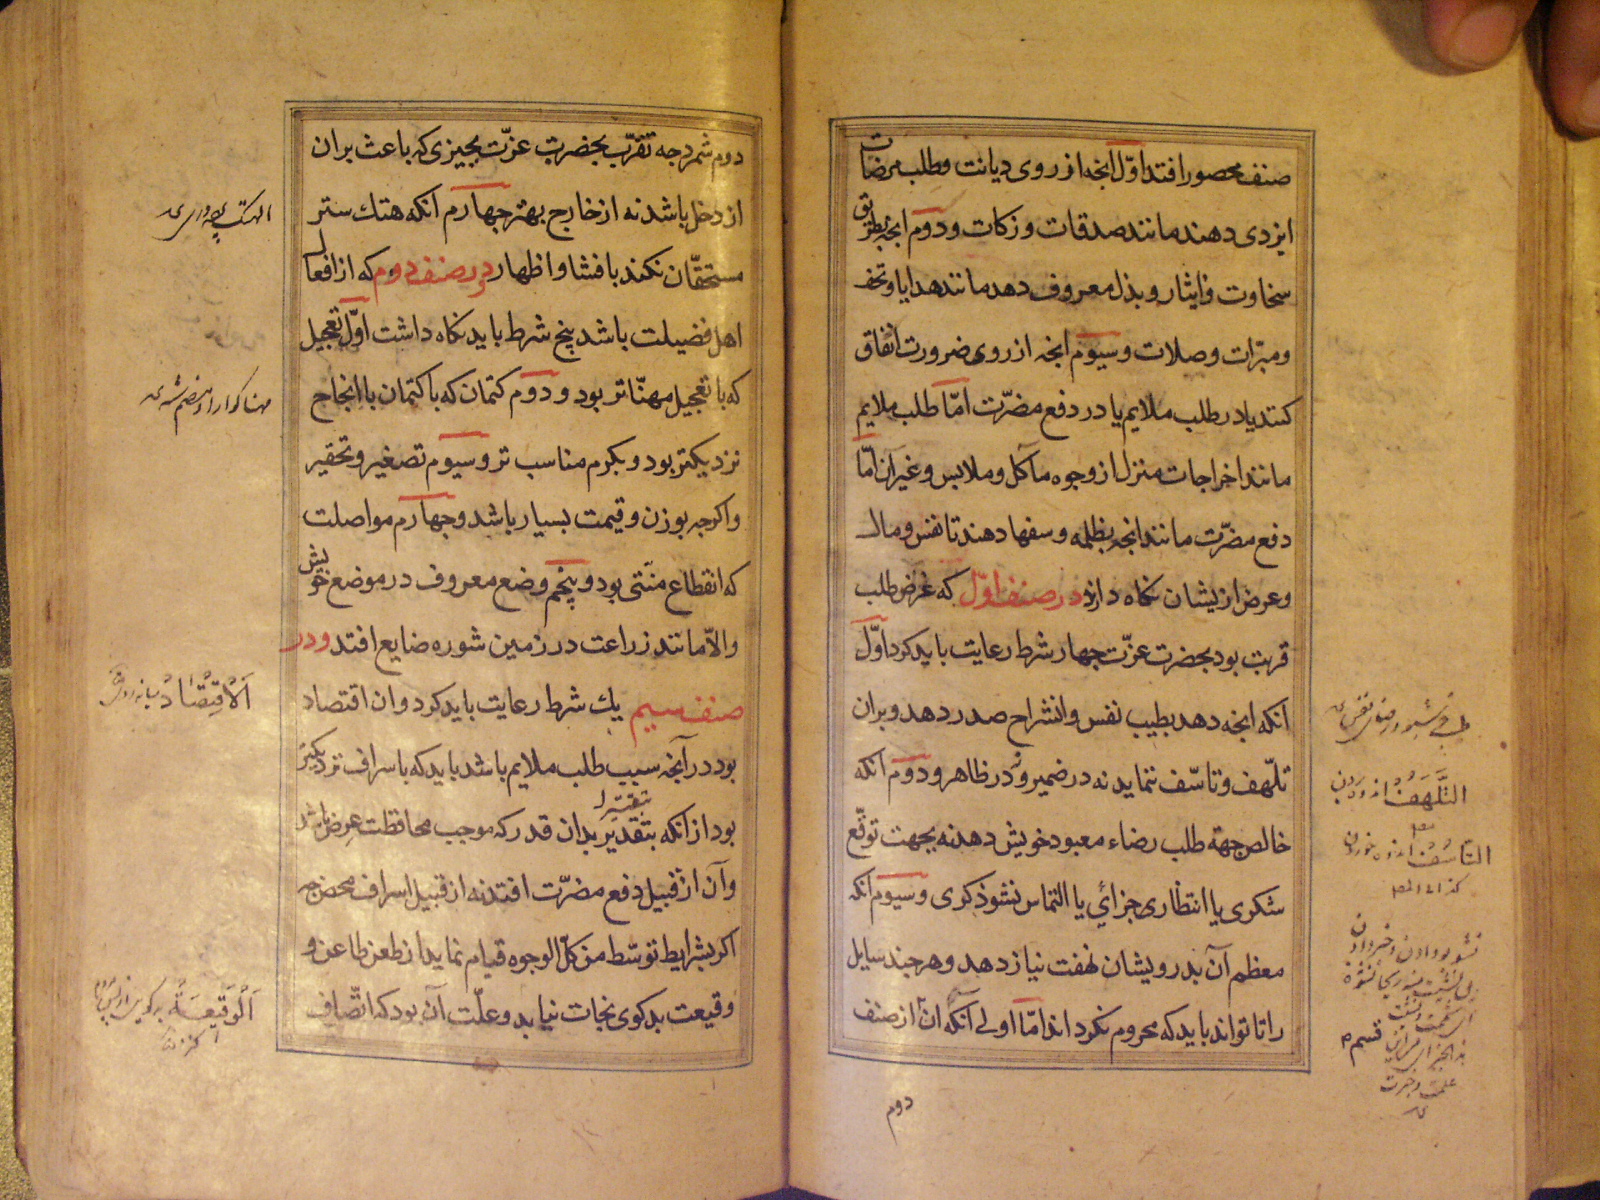 صنف محصور افتد اوّل آنچه از روی دیانت و طلب مرضات
ایزدی دهند مانند صدقات و زکات و دوم آنچه بطریق
سخاوت و ایثار و بذل معروف دهد مانند هدایا و تحف
و مبرّات و صلات و سیوم آنچه از روی ضرورت انفاق
کنند یا در طلب ملایم یا در دفع مضرّت امّا طلب ملایم
مانند اخراجات منزل از وجوه مآکل و ملابس و غیر آن امّا
دفع مضرّت مانند آنچه بظلمه و سفها دهند تا نفس و مال
و عرض ازیشان نکاه دارند در صنف اوّل که غرض طلب
قربت بود بحضرت عزّت چهار شرط رعایت باید کرد اوّل
آنکه آنچه دهد بطیب نفس و انشراح صدر دهد و بران
تلّهف و تاسّف ننماید نه در ضمیر و نه در ظاهر و دوم آنکه
خالص جهة طلب رضاء معبود خویش دهد نه بجهت توقّع
شکری یا انتظاری جزائي یا التماس نشو ذکری و سیوم آنکه
معظم آن بدرویشان نهفت نیاز دهد و هر چند سایل
را تا تواند باید که محروم نکرداند امّا اولی آنکه آن از صنف
دوم
طیب
التَّلَهّفُ اندوه بردن
التاسُّفُ اندوه خوردن
دوم شمرد چه تقرّب بحضرت عزّت بچیزی که باعث بران
از دخل باشد نه از خارج بهتر چهارم آنکه هتك ستر
مستحقّان نکند بافشا و اظهار در صنف دوم که از افعال
اهل فضیلت باشد پنج شرط باید نکاه داشت اوّل تعجیل
که با تعجیل مهنّاتر بود و دوم کتمان که با کتمان با انجاح
نزدیکتر بود و بکرم مناسب تر و سیوم تصغیر و تحقیر
و اکرچه بوزن و قیمت بسیار باشد و چهارم مواصلت
که انقطاع منسّی بود و پنجم وضع معروف در موضع خویش
والّا مانند زراعت در زمین شوره ضایع افتد و در
صنف سیم یك شرط رعایت باید کرد و ان اقتصاد
بود در آنچه سبب طلب ملایم باشد باید که باسراف نزدیکتر
بود از آنکه بتقدیر بدان قدر که موجب محافظت عرض باشد
بتقتیر
و آن از قبیل دفع مضرّت افتد نه از قبیل اسراف محض چه
اکر بشرایط توسّط من کلّ الوجوه قیام نماید از طعن طاعن و
وقیعت بدکوی نجات نیابد و علّت آن بود که انصاف
الهتک پرده دری
الاقتصاد میانه روی
اَلْوَقیعَةُ